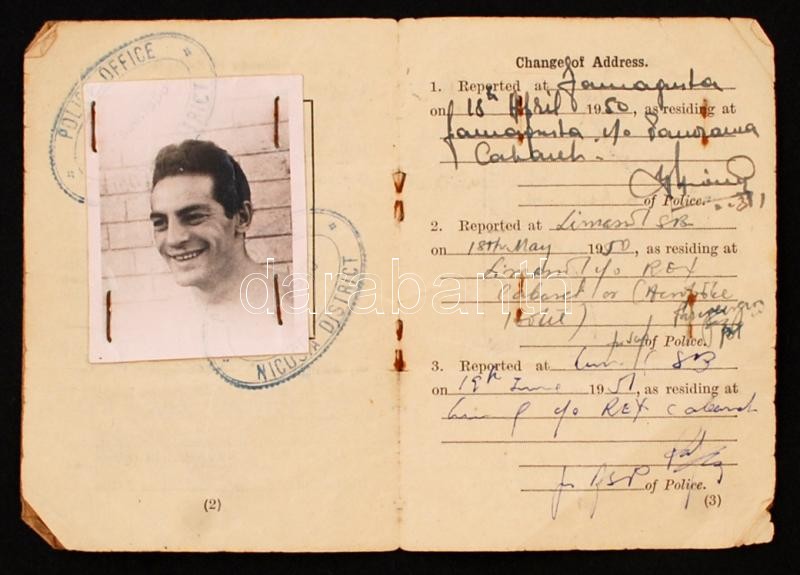 POLICE OFFICE
DISTRICT
NICOSIA DISTRICT
(2)
darabanth
Change of Address.
1. Reported at Famagusta
on 18th April 1950, as residing at
Famagusta c/o Panorama
Cabaret.
of Police.
2. Reported at Limassol SB
on 18th May 1950, as residing at
Limassol c/o REX
Cabaret or
of Police.
3. Reported at SB
on 19th June 1951, as residing at
c/o REX Cabaret
of Police.
(3)